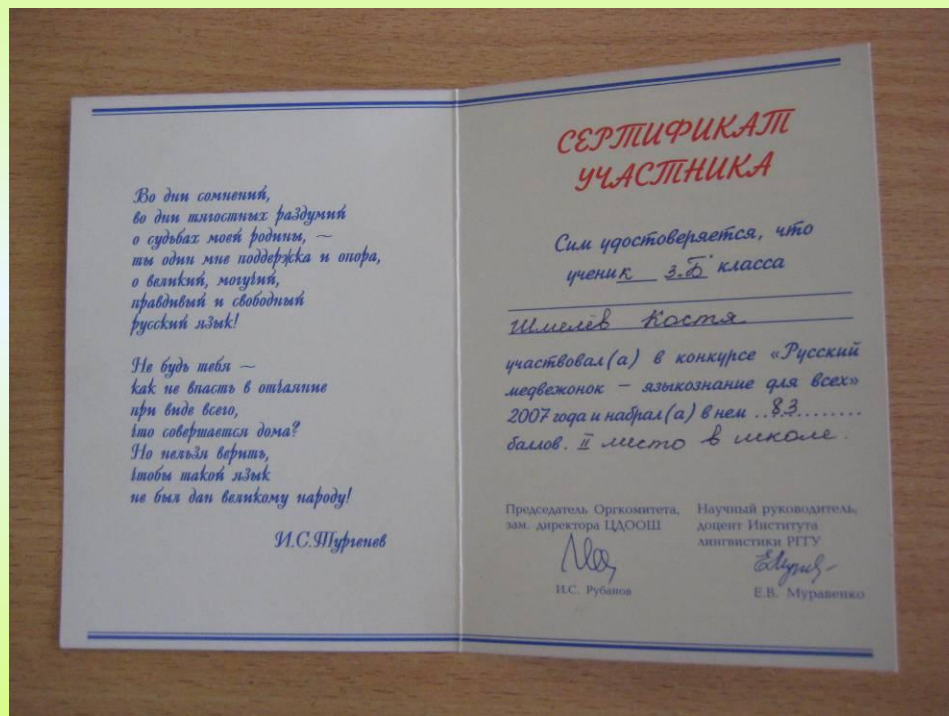 Во дни сомнений,
во дни тягостных раздумий
о судьбах моей родины, —
ты один мне поддержка и опора,
о великий, могучий,
правдивый и свободный
русский язык!
Не будь тебя —
как не впасть в отчаяние
при виде всего,
что совершается дома?
Но нельзя верить,
чтобы такой язык
не был дан великому народу!
И.С.Тургенев
СЕРТИФИКАТ
УЧАСТНИКА
Сим удостоверяется, что
ученик 3 "Б" класса
Шмелёв Костя
участвовал(а) в конкурсе «Русский
медвежонок — языкознание для всех»
2007 года и набрал(а) в нем ..83........
баллов. II место в школе.
Председатель Оргкомитета,
зам. директора ЦДООШ
И.С. Рубанов
Научный руководитель,
доцент Института
лингвистики РГГУ
Е.В. Муравенко